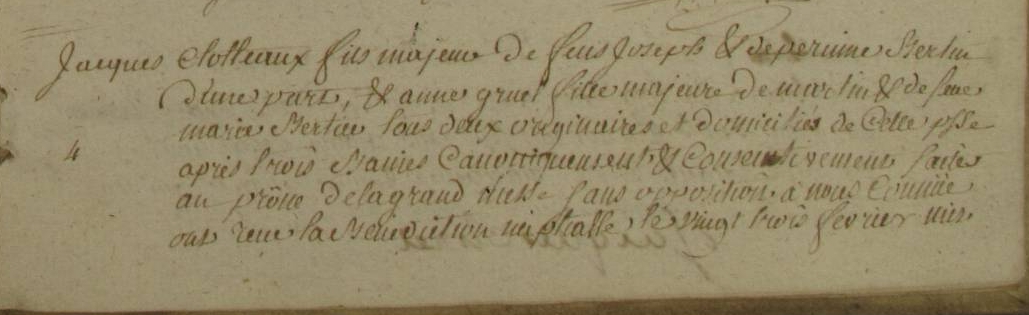 Jacques Clolteaux fils majeur de feus Joseph & de perinne Bertin
d'une part, & anne gruel fille majeure de martin & de feue
marie Bertin tous deux originaires et domiciliés de Cette psse
4
après trois Bannies Canoniquement & Consecutivement faites
au prône de la grand Messe sans opposition à nous Connüe
ont reçu la Benediction nuptialle le vingt trois février mil